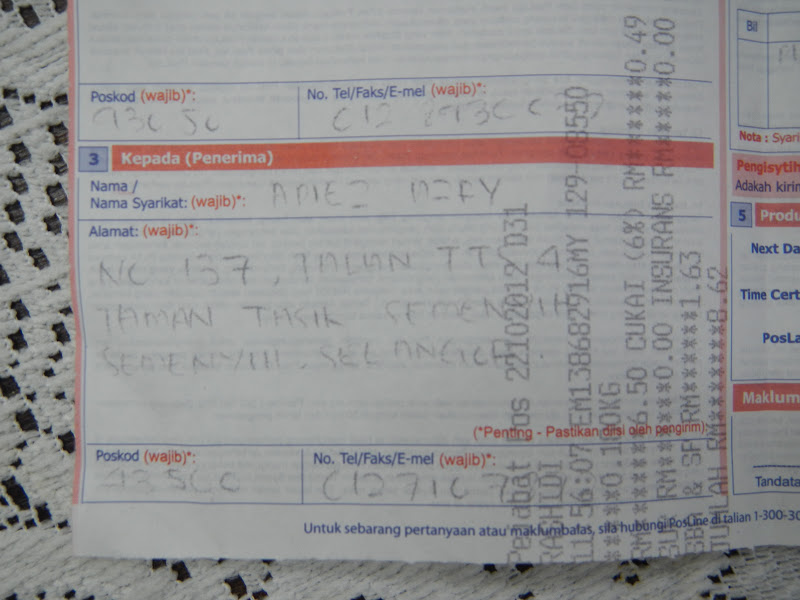 Poskod (wajib)*:
No. Tel/Faks/E-mel (wajib)*:
3 Kepada (Penerima)
Nama /
Nama Syarikat: (wajib)*:
Alamat: (wajib)*:
NO 137, JALAN TTS 4
TAMAN TASIK SEMENYIH
SEMENYIH, SELANGOR.
(*Penting - Pastikan diisi oleh pengirim):
Poskod (wajib)*:
43500
No. Tel/Faks/E-mel (wajib)*:
Untuk sebarang pertanyaan atau maklumbalas, sila hubungi PosLine di talian 1-300-30
Pejabat Pos 22102012 D31
RASHIDI
11:56:07 EM138682916MY 129-08550
RM******6.50 CUKAI (6%) RM******0.49
RM******0.00 INSURANS RM******0.00
TUMLAH RM*******8.62
Bil
Nota : Syari
Pengisytih
Adakah kirin
5 Produ
Next Da
Time Cert
PosLa
Maklum
Tandata